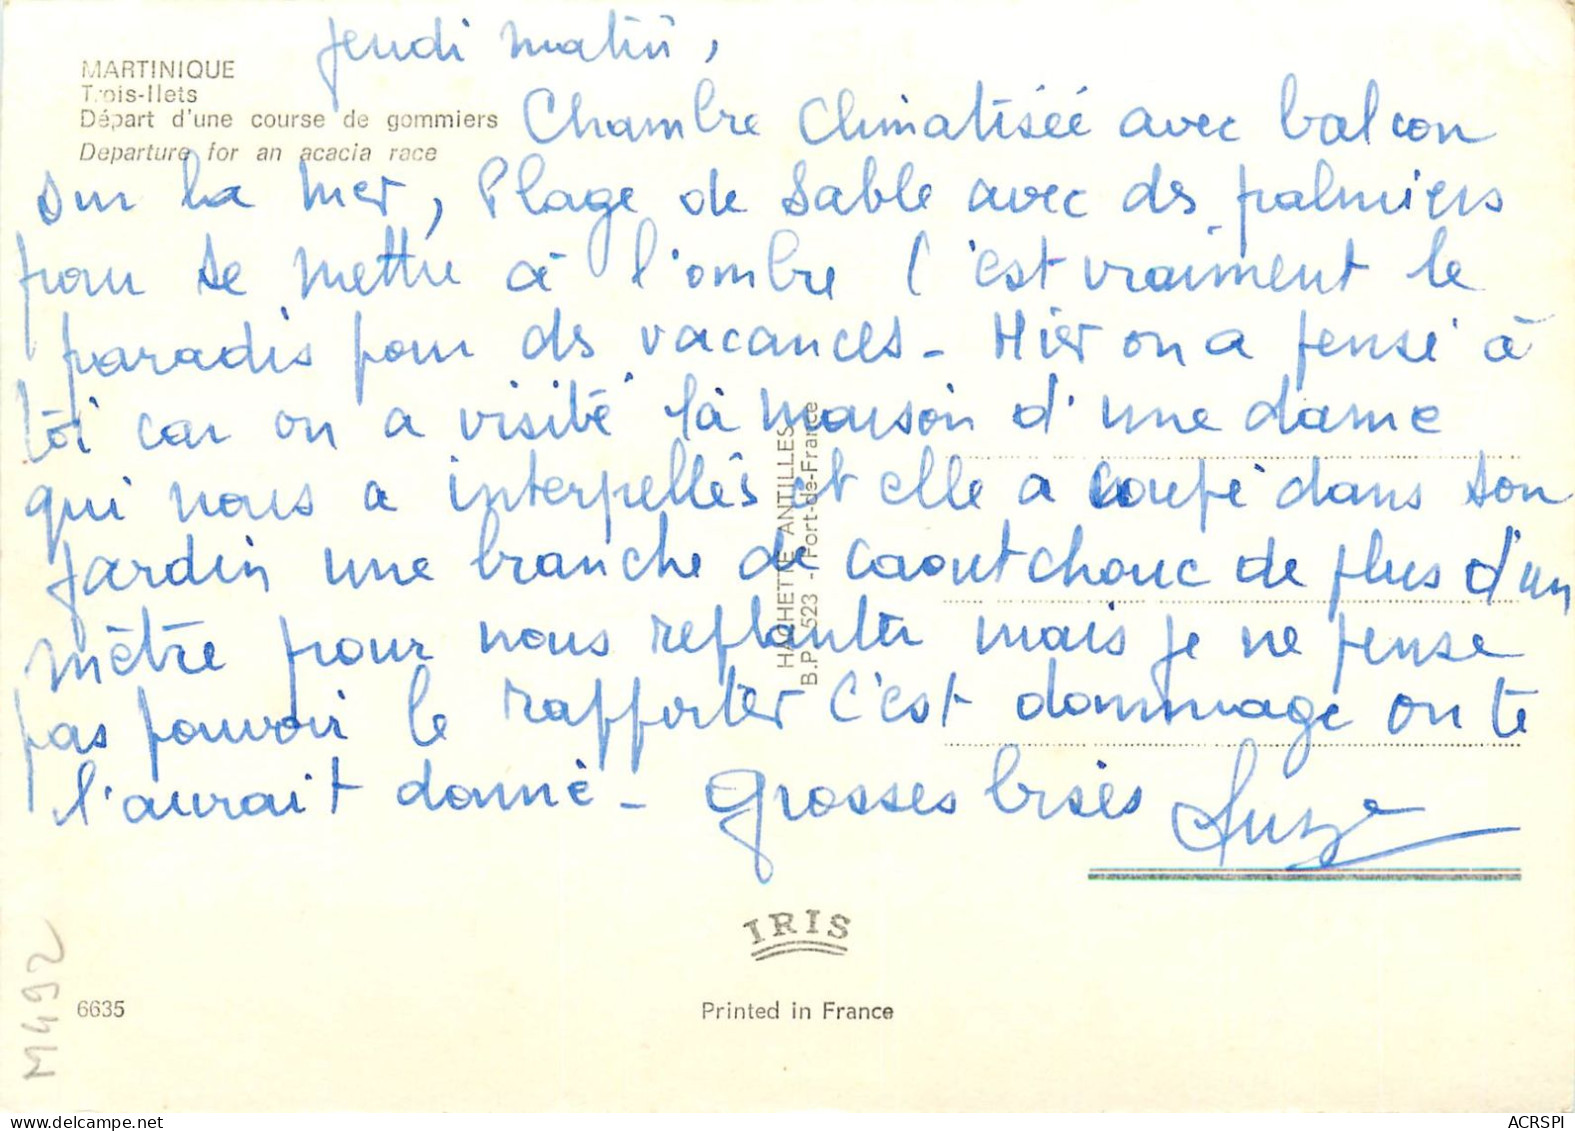 Jeudi matin,
MARTINIQUE
Trois-Ilets
Départ d'une course de gommiers
Departure for an acacia race
Chambre Climatisée avec balcon
sur la mer, Plage de sable avec des palmiers
pour se mettre à l'ombre C'est vraiment le
paradis pour des vacances - Hier on a pensé à
toi car on a visité la maison d'une dame
qui nous a interpellés et elle a coupé dans son
jardin une branche de caoutchouc de plus d'un
mètre pour nous replanter mais je ne pense
pas pouvoir le rapporter c'est dommage on te
l'aurait donné - grosses bises Suze
HACHETTE ANTILLES
B.P. 523 - Fort-de-France
IRIS
6635
Printed in France
M492
ACRSPI